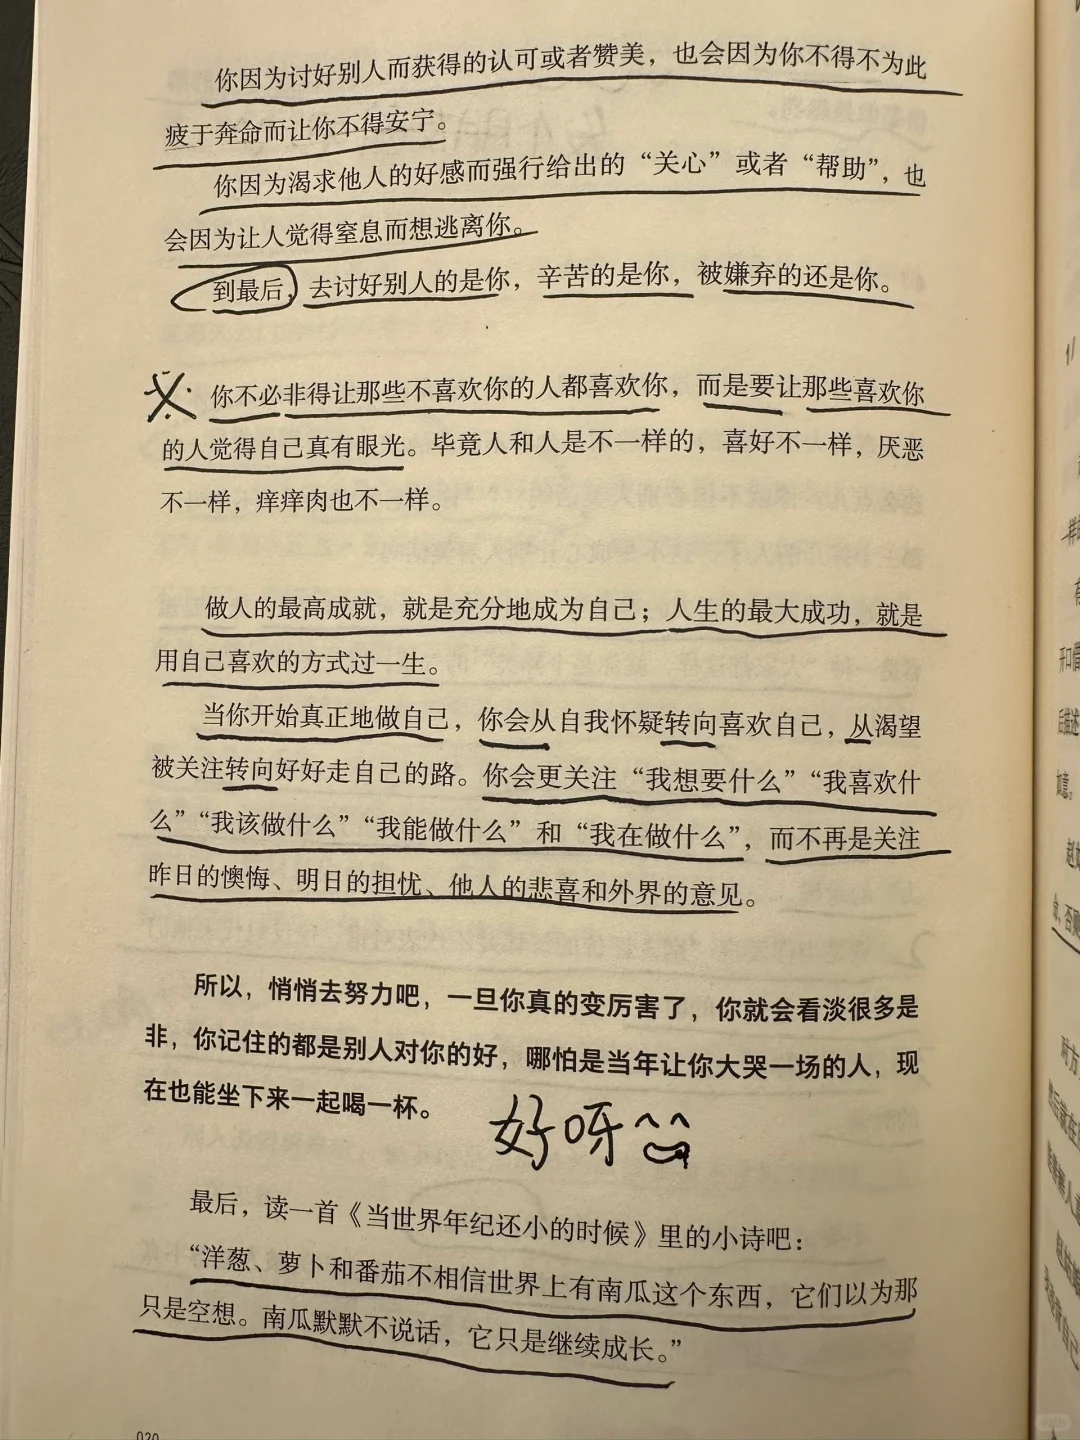 你因为讨好别人而获得的认可或者赞美，也会因为你不得不为此
疲于奔命而让你不得安宁。
你因为渴求他人的好感而强行给出的“关心”或者“帮助”，也
会因为让人觉得窒息而想逃离你。
到最后，去讨好别人的是你，辛苦的是你，被嫌弃的还是你。
你不必非得让那些不喜欢你的人都喜欢你，而是要让那些喜欢你
的人觉得自己真有眼光。毕竟人和人是不一样的，喜好不一样，厌恶
不一样，痒痒肉也不一样。
做人的最高成就，就是充分地成为自己；人生的最大成功，就是
用自己喜欢的方式过一生。
当你开始真正地做自己，你会从自我怀疑转向喜欢自己，从渴望
被关注转向好好走自己的路。你会更关注“我想要什么”“我喜欢什
么”“我该做什么”“我能做什么”和“我在做什么”，而不再是关注
昨日的懊悔、明日的担忧、他人的悲喜和外界的意见。
所以，悄悄去努力吧，一旦你真的变厉害了，你就会看淡很多是
非，你记住的都是别人对你的好，哪怕是当年让你大哭一场的人，现
在也能坐下来一起喝一杯。
好呀
最后，读一首《当世界年纪还小的时候》里的小诗吧：
“洋葱、萝卜和番茄不相信世界上有南瓜这个东西，它们以为那
只是空想。南瓜默默不说话，它只是继续成长。”
020
开口借
后描述
如意。
对方